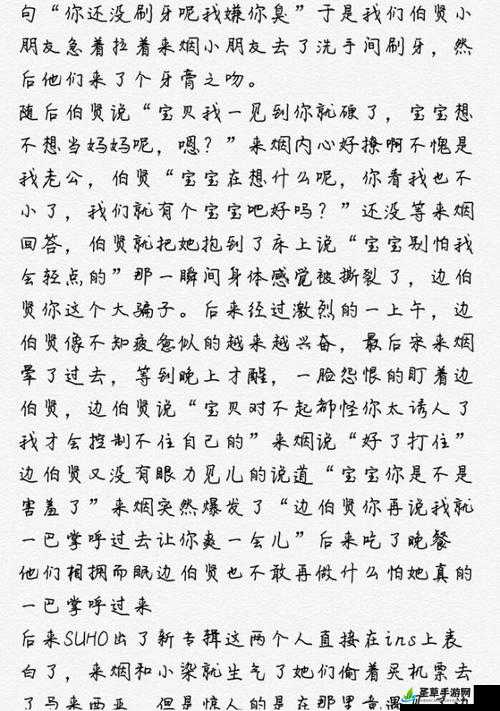 句“你还没刷牙呢我嫌你臭”于是我们伯贤小
朋友急着拉着来烟小朋友去了洗手间刷牙，然
后他们来了个牙膏之吻。
随后伯贤说“宝贝我一见到你就硬了，宝宝想
不想当妈妈呢，嗯？”来烟内心好撩啊不愧是
我老公，伯贤“宝宝在想什么呢，你看我也不
小了，我们就有个宝宝吧好吗？”还没等来烟
回答，伯贤就把她抱到了床上说“宝宝别怕我
会轻点的”那一瞬间身体感觉被撕裂了，边伯
贤你这个大骗子。后来经过激烈的一上午，边
伯贤像不知疲惫似的越来越兴奋，最后宋来烟
晕了过去，等到晚上才醒，一脸怨恨的盯着边
伯贤，边伯贤说“宝贝对不起都怪你太诱人了
我才会控制不住自己的”来烟说“好了打住”
边伯贤又没有眼力见儿的说道“宝宝你是不是
害羞了”来烟突然爆发了“边伯贤你再说我就
一巴掌呼过去让你爽一会儿”后来吃了晚餐
他们相拥而眠边伯贤也不敢再做什么怕她真的
一巴掌呼过来
后来SUHO出了新专辑这两个人直接在ins上表
白了，来烟和小染就生气了她们偷着买机票去
了马来西亚，但是惊人的是在那里竟遇